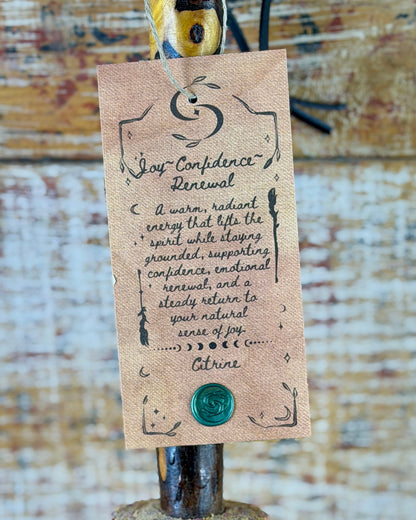 Joy~Confidence~
Renewal
A warm, radiant
energy that lifts the
spirit while staying
grounded, supporting
confidence, emotional
renewal, and a
steady return to
your natural
sense of joy.
Citrine